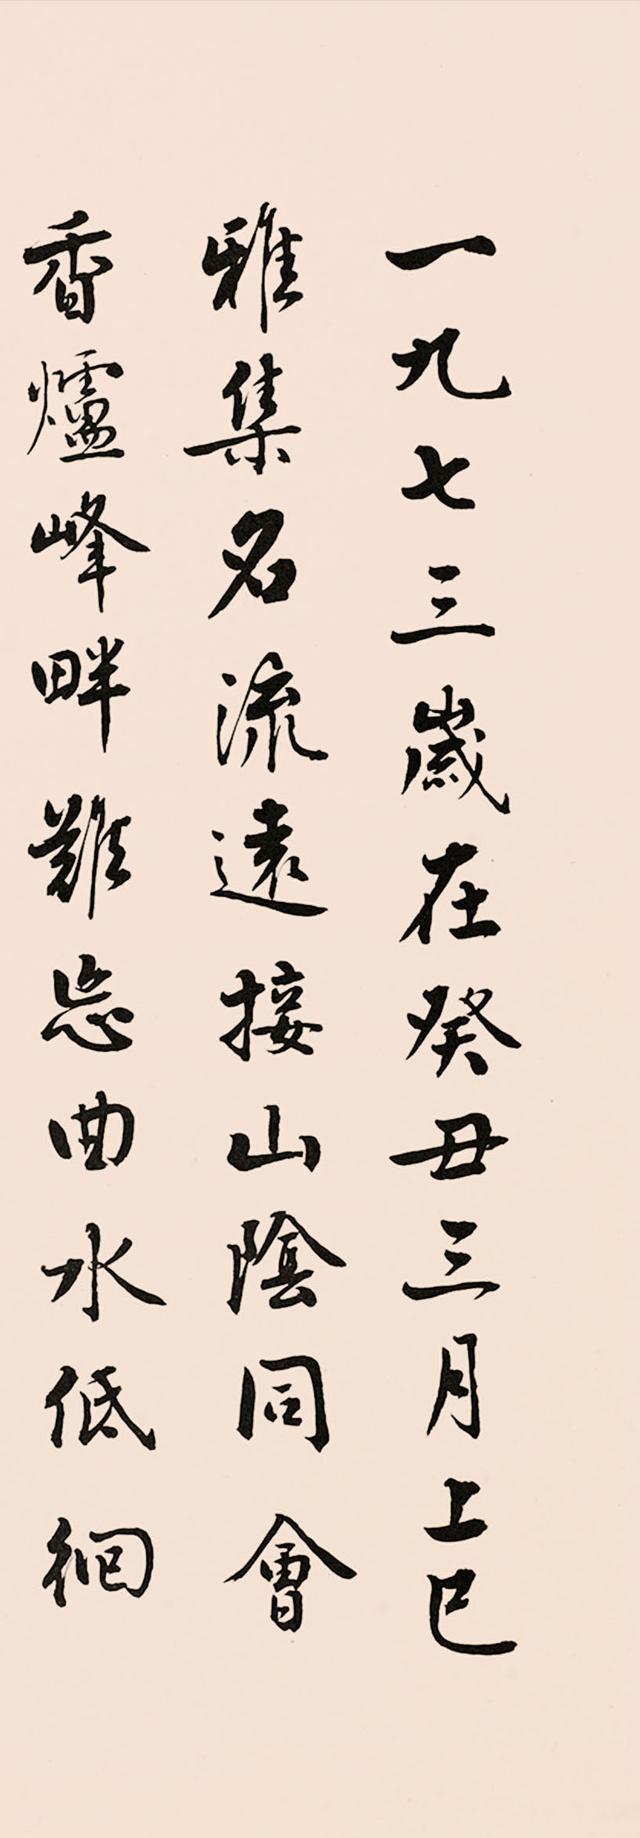 一九七三歲在癸丑三月上巳
雅集名流遠接山陰同會
香爐峰畔難忘曲水低徊